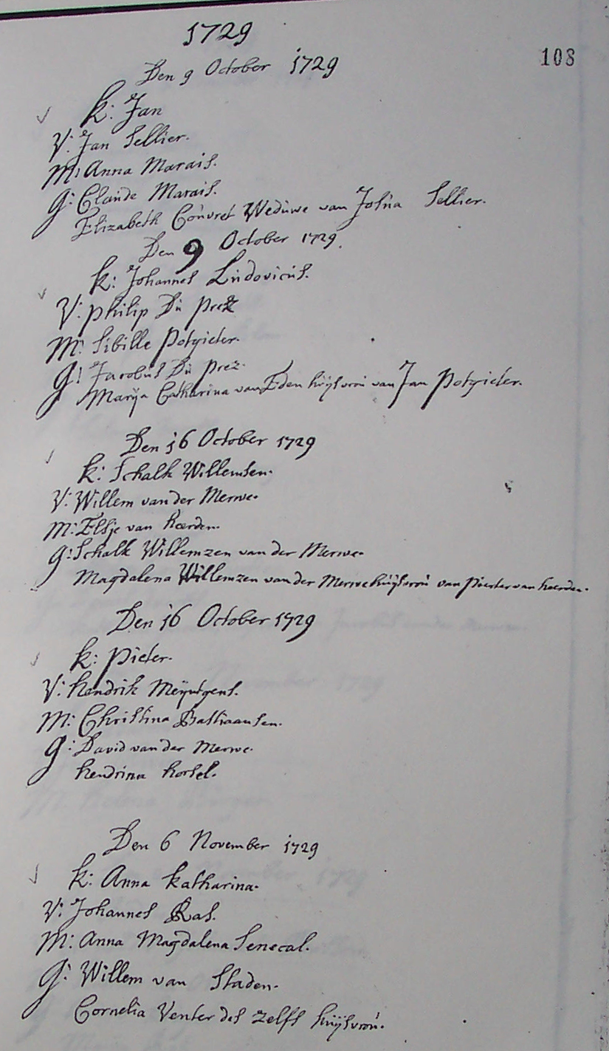 1729
108
Den 9 October 1729
k: Jan
V: Jan Sellier.
M: Anna Marais.
G: Claude Marais.
Elizabeth Couvret Weduwe van Josua Sellier.
Den 9 October 1729.
k: Johannes Ludovicus.
V: Philip Du Prez
M: Sibille Potgieter.
G: Jacobus Du Prez.
Marija Catharina van Eden huijsvrou van Jan Potgieter.
Den 16 October 1729
k: Schalk Willemsen.
V: Willem van der Merwe.
M: Elsje van heerden.
G: Schalk Willemzen van der Merwe.
Magdalena Willemzen van der Merwe huijsvrou van Pieter van heerden.
Den 16 October 1729
k: Pieter.
V: hendrik Meijntgens.
M: Christina Bastiaansen.
G: David van der Merwe.
hendrina
Den 6 November 1729
k: Anna katharina.
V: Johannes Ras.
M: Anna Magdalena Senecal.
G: Willem van Staden.
Cornelia Venter des zelfs huijsvrou.